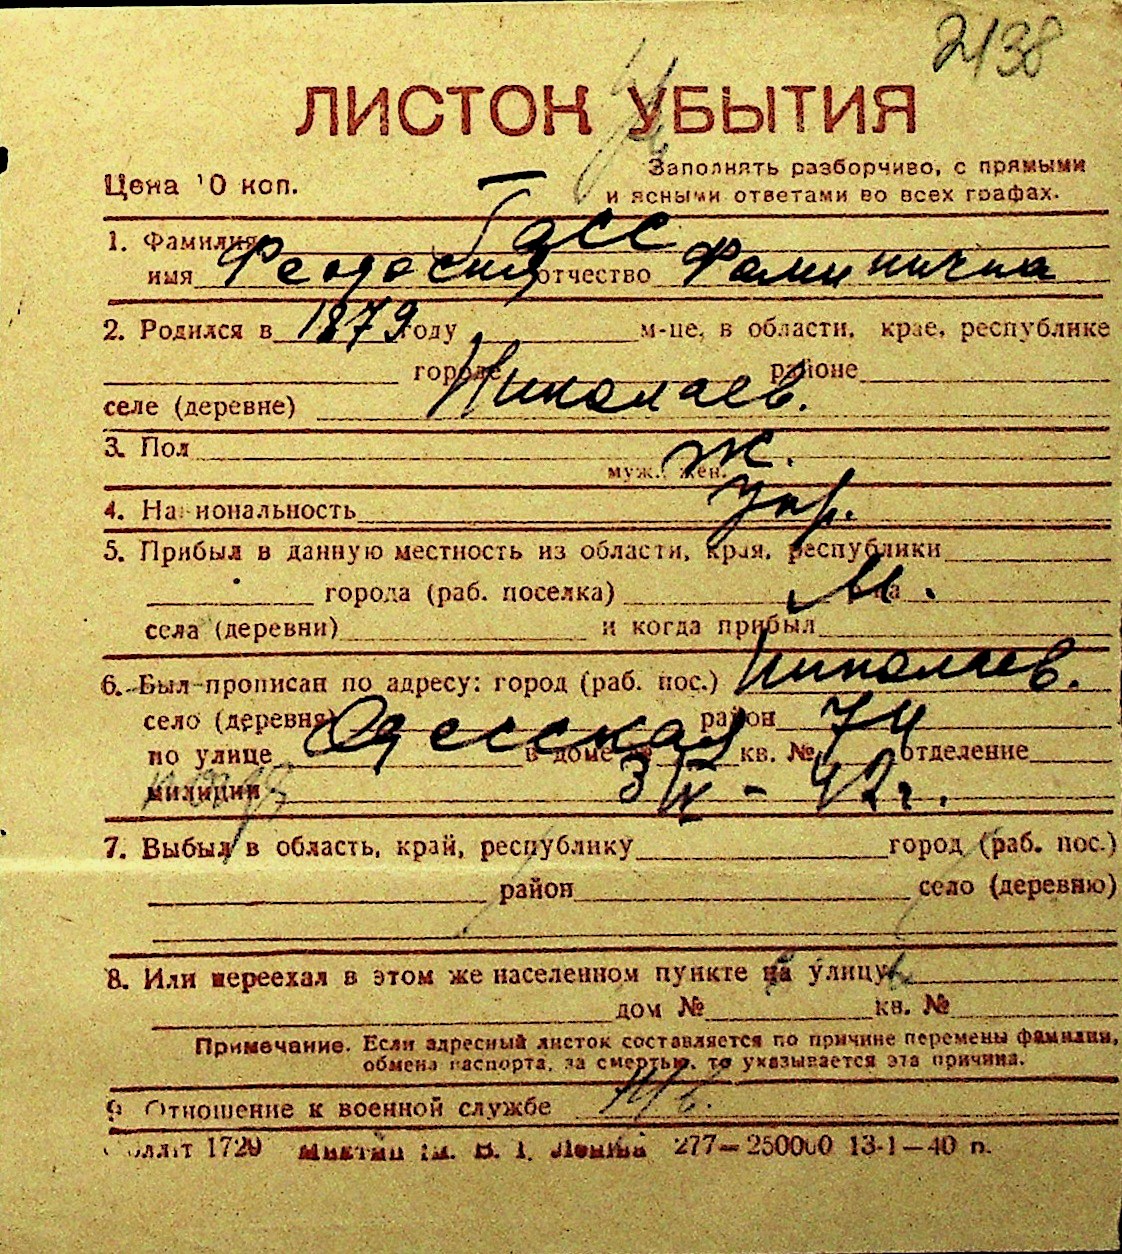 2138
ЛИСТОК УБЫТИЯ
Цена 10 коп.
Заполнять разборчиво, с прямыми
и ясными ответами во всех графах.
1. Фамилия Гасс
имя Феодосия отчество Фоминична
2. Родился в 1879 году м-це, в области, крае, республике
городе районе
селе (деревне) Николаев.
3. Пол ж.
муж., жен.
4. Национальность укр.
5. Прибыл в данную местность из области, края, республики
города (раб. поселка) М.
села (деревни) и когда прибыл
6. Был прописан по адресу: город (раб. пос.) Николаев.
село (деревня) район
по улице Одесская в доме № 74 кв. № отделение
милиции 3/IX - 42г.
7. Выбыл в область, край, республику город (раб. пос.)
район село (деревню)
8. Или переехал в этом же населенном пункте на улицу
дом № кв. №
Примечание. Если адресный листок составляется по причине перемены фамилии,
обмена паспорта, за смертью, то указывается эта причина.
9 Отношение к военной службе
1720 277—250000 13-1—40 п.